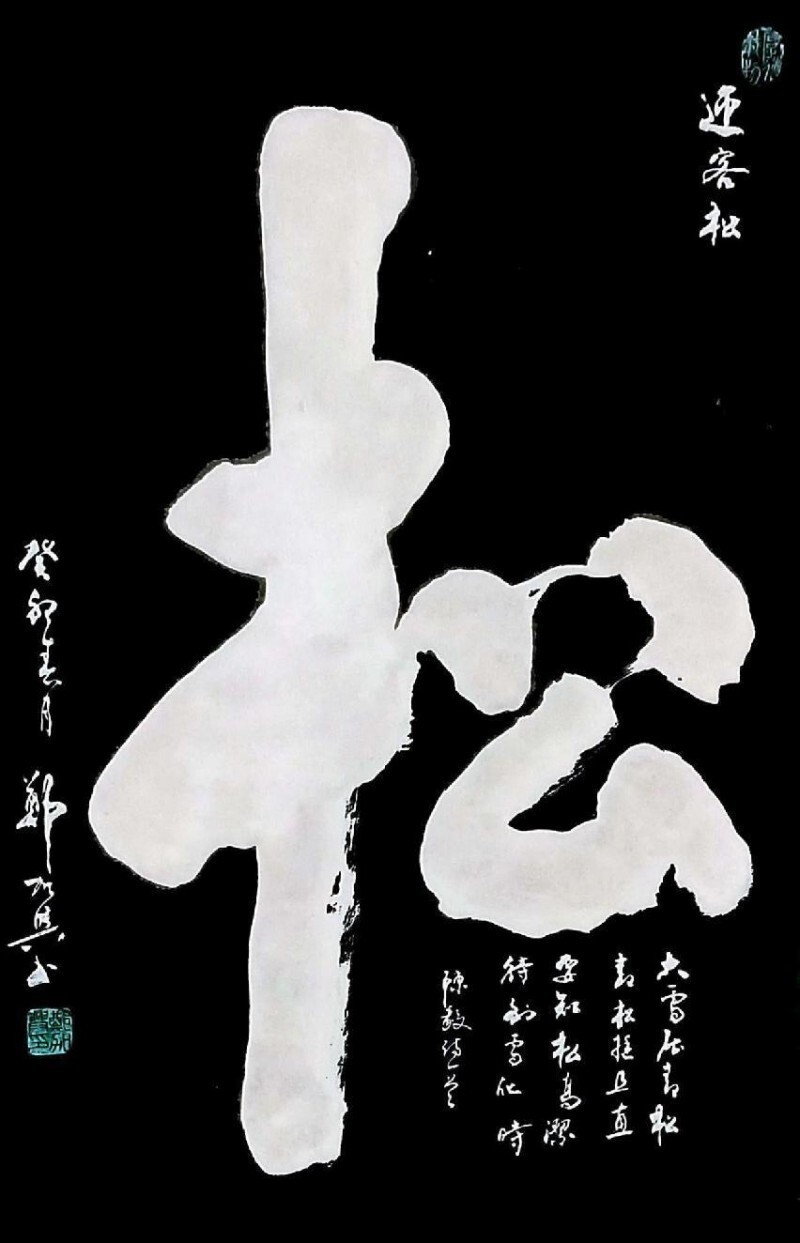 迎客松
松
大雪压青松
青松挺且直
要知松高潔
待到雪化時
陳毅诗一首
癸卯春月 鄭